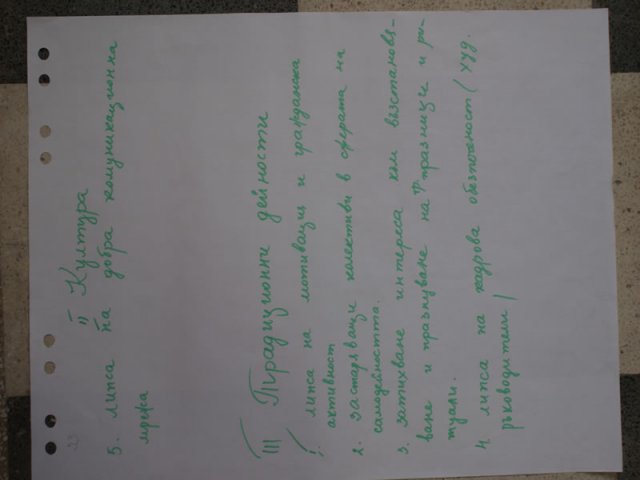 23
II Култура
5. липса на добра комуникационна
мрежа
III Традиционни дейности
1. липса на мотивация и гражданска
активност
2. застаряващи колективи в сферата на
самодейността.
3. затихване интереса към възстановя-
ване и празнуване на празници и ри-
туали.
4. липса на кадрова обезпеченост (худ.
ръководители)